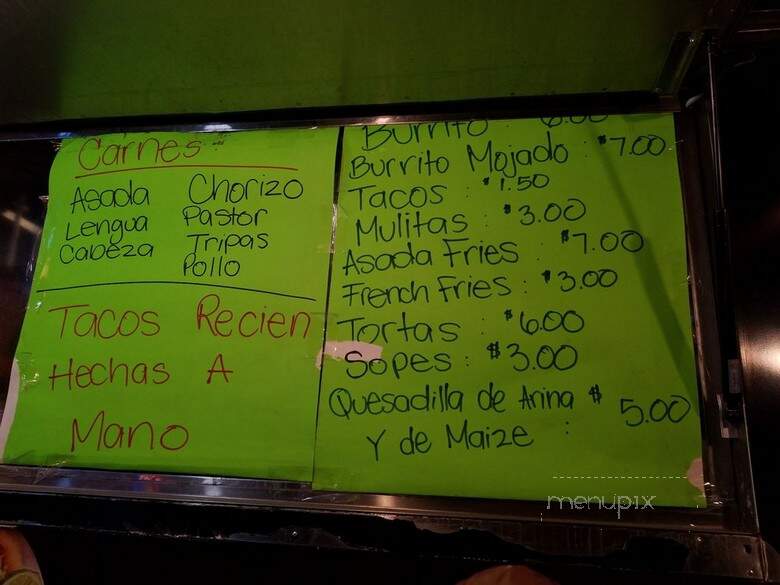 Carnes:
Asada Chorizo
Lengua Pastor
Cabeza Tripas
Pollo
Tacos Recien
Hechas A
Mano
Burrito : 6.00
Burrito Mojado : $7.00
Tacos : $1.50
Mulitas : $3.00
Asada Fries : $7.00
French Fries : $3.00
Tortas : $6.00
Sopes : $3.00
Quesadilla de Arina $ 5.00
Y de Maize :
menupix